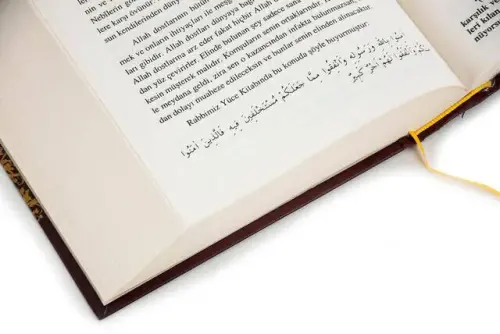 Nebilerin g
lere karşı övünür.
sun kendilerinden dünya
Allah dostlarının
mek ve onların ihtiyaçları ile meşg
ları gibidir. Allah dostları dünyayı bağ
Allah dostlarına arz eder fakat hiçbir Allah d
dan yüz çevirirler. Elinde bulunan şey sadece sana
kesin müşterek malıdır. Komşuların senin ortaklarındır.
le meydana geldi, zira sen o kazancından infakta bulunmamıştın,
dan dolayı muaheze edileceksin ve bunlar senin elinden alınacaktır.
Rabbimiz Yüce Kitabında bu konuda şöyle buyurmuştur:
اٰمِنُوا بِاللّٰهِ وَرَسُولِهِ وَاَنْفِقُوا مِمَّا جَعَلَكُمْ مُسْتَخْلَفِينَ فِيهِ فَالَّذِينَ اٰمَنُوا
مِنْكُمْ وَاَنْفَقُوا لَهُمْ اَجْرٌ كَبِيرٌ
karşılık
leri kılan
niyorsun